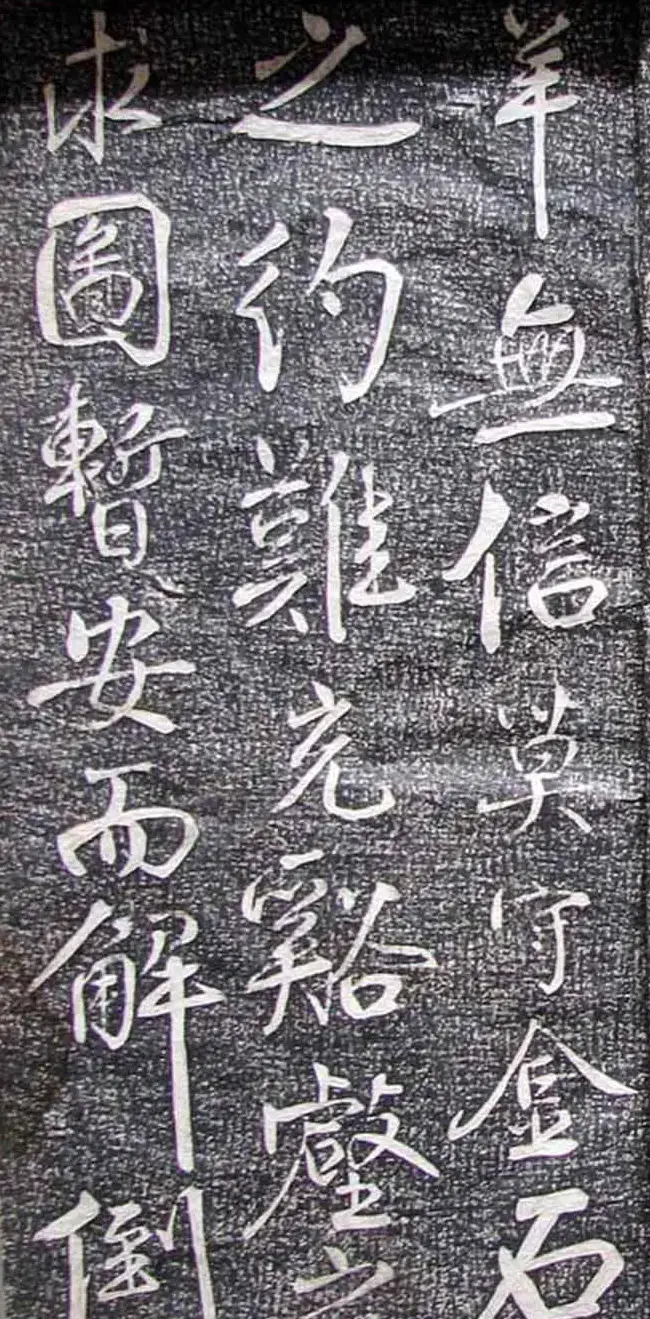 羊無信莫守金石
之約難充谿壑之
求圖暫安而解倒